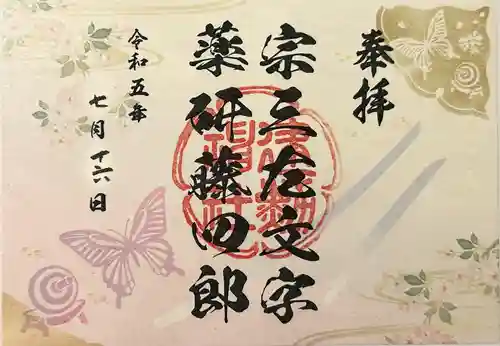 奉拝
宗三左文字
薬研藤四郎
令和五年
七月十六日